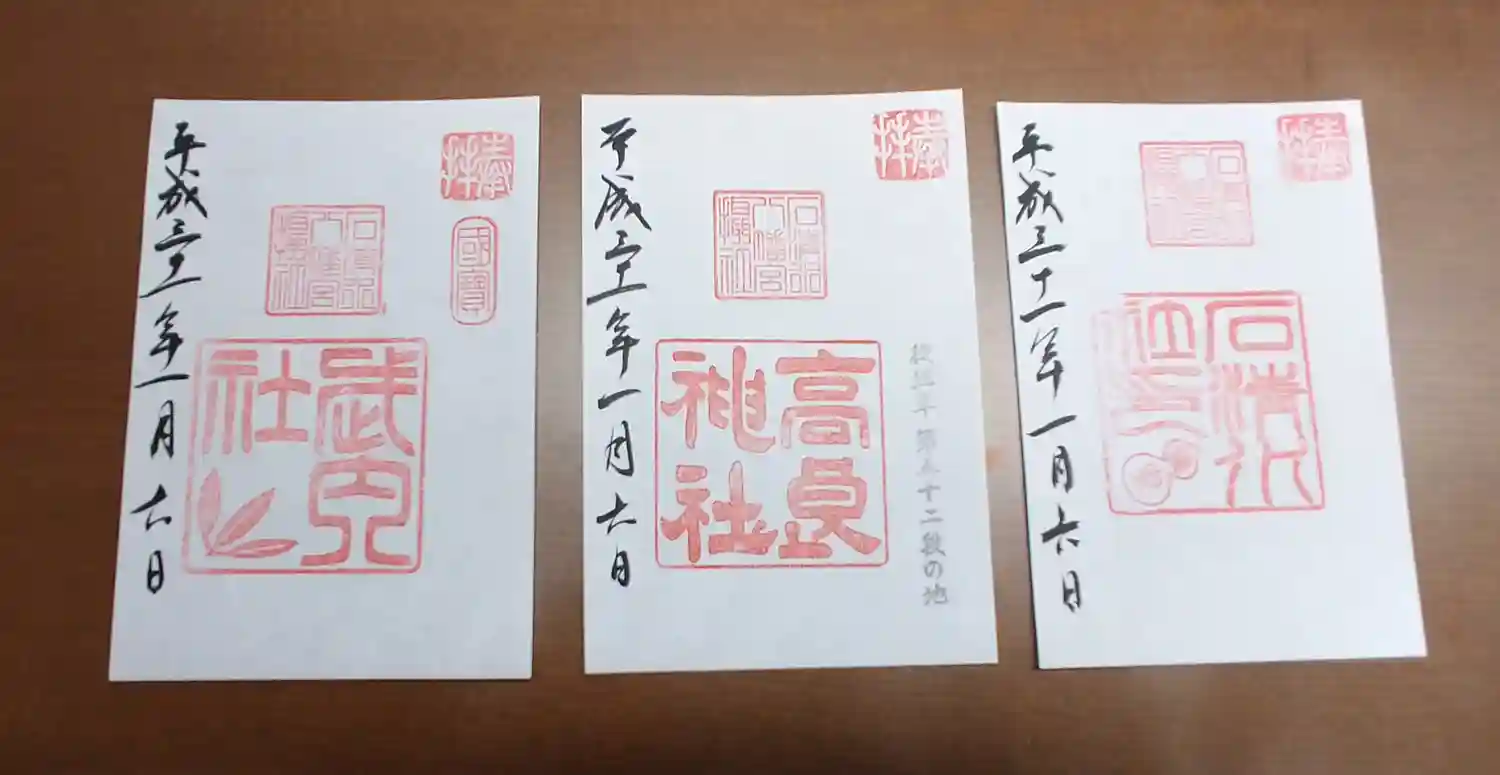 奉拝
國寳
石清水
八幡宮
摂社
武内
社
平成三十一年一月六日
奉拝
徒然草第五十二段の地
石清水
八幡宮
攝社
高良
神社
平成三十一年一月六日
奉拝
石清水
八幡宮
石清水
社
平成三十一年一月六日